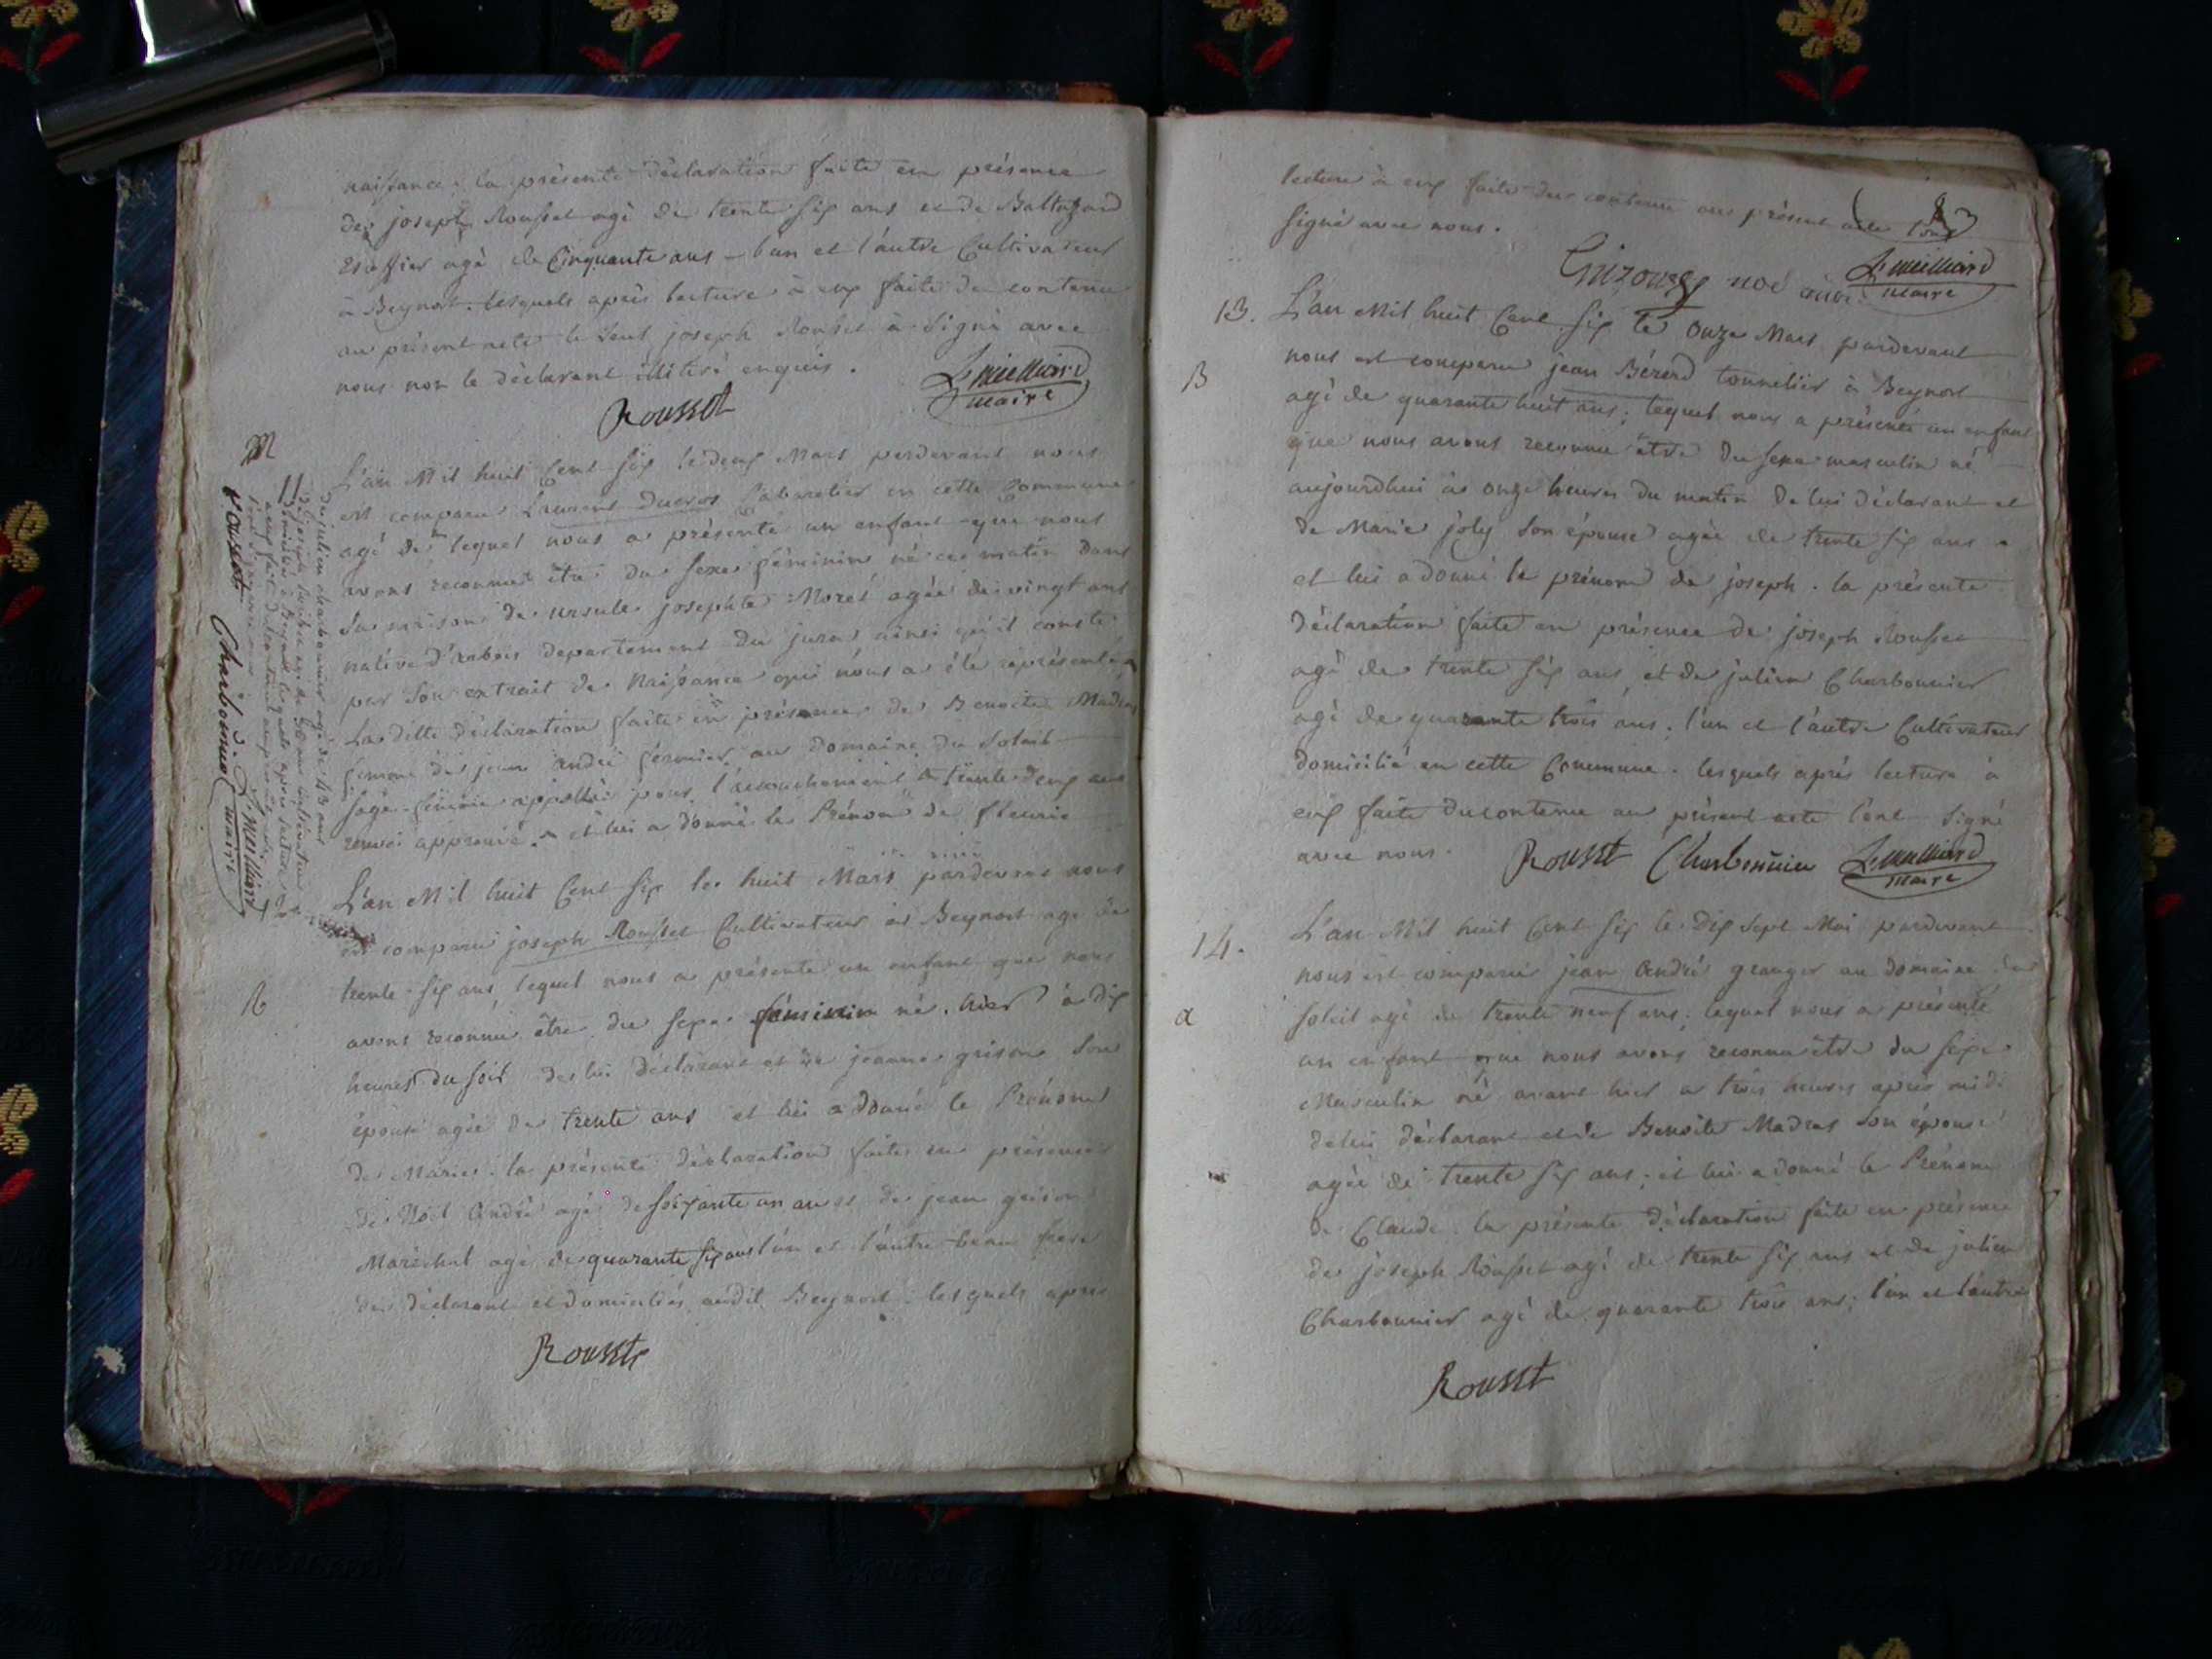 naissance. la présente déclaration faite en présence
de joseph Rousset agé de trente six ans et de Baltazard
agé de Cinquante ans l'un et l'autre Cultivateur
à Beynost. lesquels après lecture à eux faite du contenu
au présent acte le seul joseph Rousset a signé avec
nous non le déclarant illitéré enquis.
Lemeilliard
maire
Roussot
M
11
L'an Mil huit Cent six le deux Mars pardevant nous
est comparu Laurent Ducrot Cabaretier en cette Commune
agé de lequel nous a présenté un enfant que nous
avons reconnu être du sexe féminin né ce matin dans
sa maison de ursule josephte Morel agée de vingt ans
native d'arbois departement du jura ainsi qu'il conste
par son extrait de Naissance qui nous a été représenté
La ditte déclaration faite en présence de Benoite Madras
femme de jean andré fermier au domaine du Soleil
sage-femme appellée pour l'accouchement trente deux ans
renvoi approuvé. et lui a donné le Prénom de fleurie
de julien charbonnier agé de 43 ans
Rousset Charbonnier Lemeilliard
maire
L'an Mil huit Cent six le huit Mars pardevant nous
est comparu joseph Rousset Cultivateur à Beynost agé de
trente-six ans, lequel nous a présenté un enfant que nous
R
avons reconnu être du sexe féminin né hier à dix
heures du soir de lui déclarant et de jeanne grison son
épouse agée de trente ans et lui a donné le Prénom
de Marie. la présente déclaration faite en présence
de Noël André agé de soixante un ans et de jean grison
Maréchal agé de quarante six ans l'un et l'autre beau frère
du déclarant et domiciliés audit Beynost. lesquels après
Rousste
lecture à eux faite du contenu au présent acte l'ont
signé avec nous.
noel Lemeilliard
maire
13. L'an Mil huit Cent six le onze Mars pardevant
nous est comparu jean Bérerd tonnelier à Beynost
B
agé de quarante huit ans; lequel nous a présenté un enfant
que nous avons reconnu être du sexe masculin né
aujourdhui à onze heures du matin de lui déclarant et
de Marie joly son épouse agée de trente six ans
et lui a donné le prénom de joseph. la présente
déclaration faite en présence de joseph Rousset
agé de trente six ans, et de julien Charbonnier
agé de quarante trois ans; l'un et l'autre Cultivateur
domicilié en cette Commune. lesquels après lecture à
eux faite du contenu au présent acte l'ont signé
avec nous. Rousst Charbonnier Lemeilliard
maire
14. L'an Mil huit Cent six le dix sept Mai pardevant
nous est comparu jean André granger au domaine du
a
soleil agé de trente neuf ans; lequel nous a présenté
un enfant que nous avons reconnu être du sexe
Masculin né avant hier à trois heures après midi
de lui déclarant et de Benoite Madras son épouse
agée de trente six ans; et lui a donné le Prénom
de Claude. la présente déclaration faite en présence
de joseph Rousset agé de trente six ans et de julien
Charbonnier agé de quarante trois ans; l'un et l'autre
Rousst